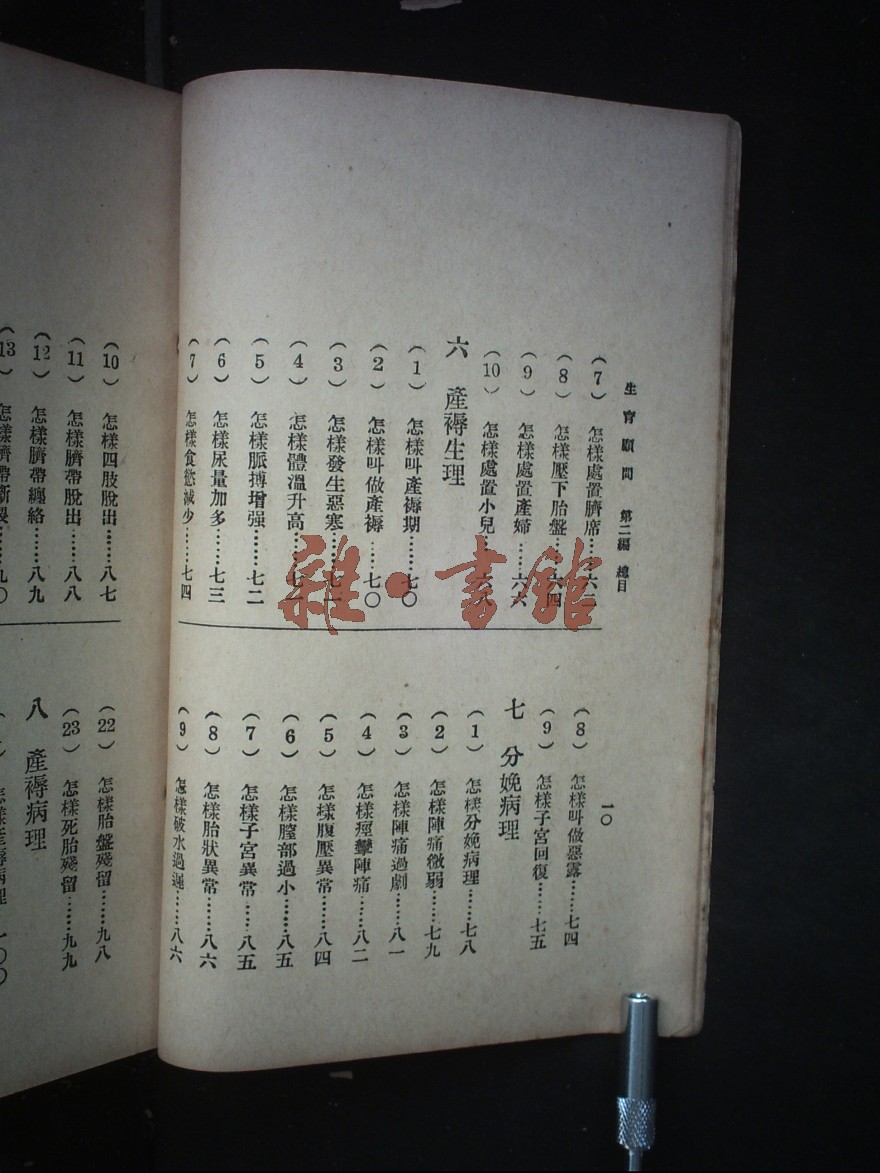 生育顧問 第二編 總目
一〇
(7) 怎樣處置臍席……六二
(8) 怎樣壓下胎盤……六四
(9) 怎樣處置產婦……六六
(10) 怎樣處置小兒……六
六 產褥生理
(1) 怎樣叫產褥期……七〇
(2) 怎樣叫做產褥……七〇
(3) 怎樣發生惡寒……七
(4) 怎樣體溫升高……七
(5) 怎樣脈搏增强……七二
(6) 怎樣尿量加多……七三
(7) 怎樣食慾減少……七四
(8) 怎樣叫做惡露……七四
(9) 怎樣子宮回復……七五
七 分娩病理
(1) 怎樣分娩病理……七八
(2) 怎樣陣痛微弱……七九
(3) 怎樣陣痛過劇……八一
(4) 怎樣痙攣陣痛……八二
(5) 怎樣腹壓異常……八四
(6) 怎樣膣部過小……八五
(7) 怎樣子宮異常……八五
(8) 怎樣胎狀異常……八六
(9) 怎樣破水過遲……八六
(10) 怎樣四肢脫出……八七
(11) 怎樣臍帶脫出……八八
(12) 怎樣臍帶纏絡……八九
(13) 怎樣臍帶斷裂……九〇
(22) 怎樣胎盤殘留……九八
(23) 怎樣死胎殘留……九九
八 產褥病理
怎樣產褥病理……一〇〇
雜·書館